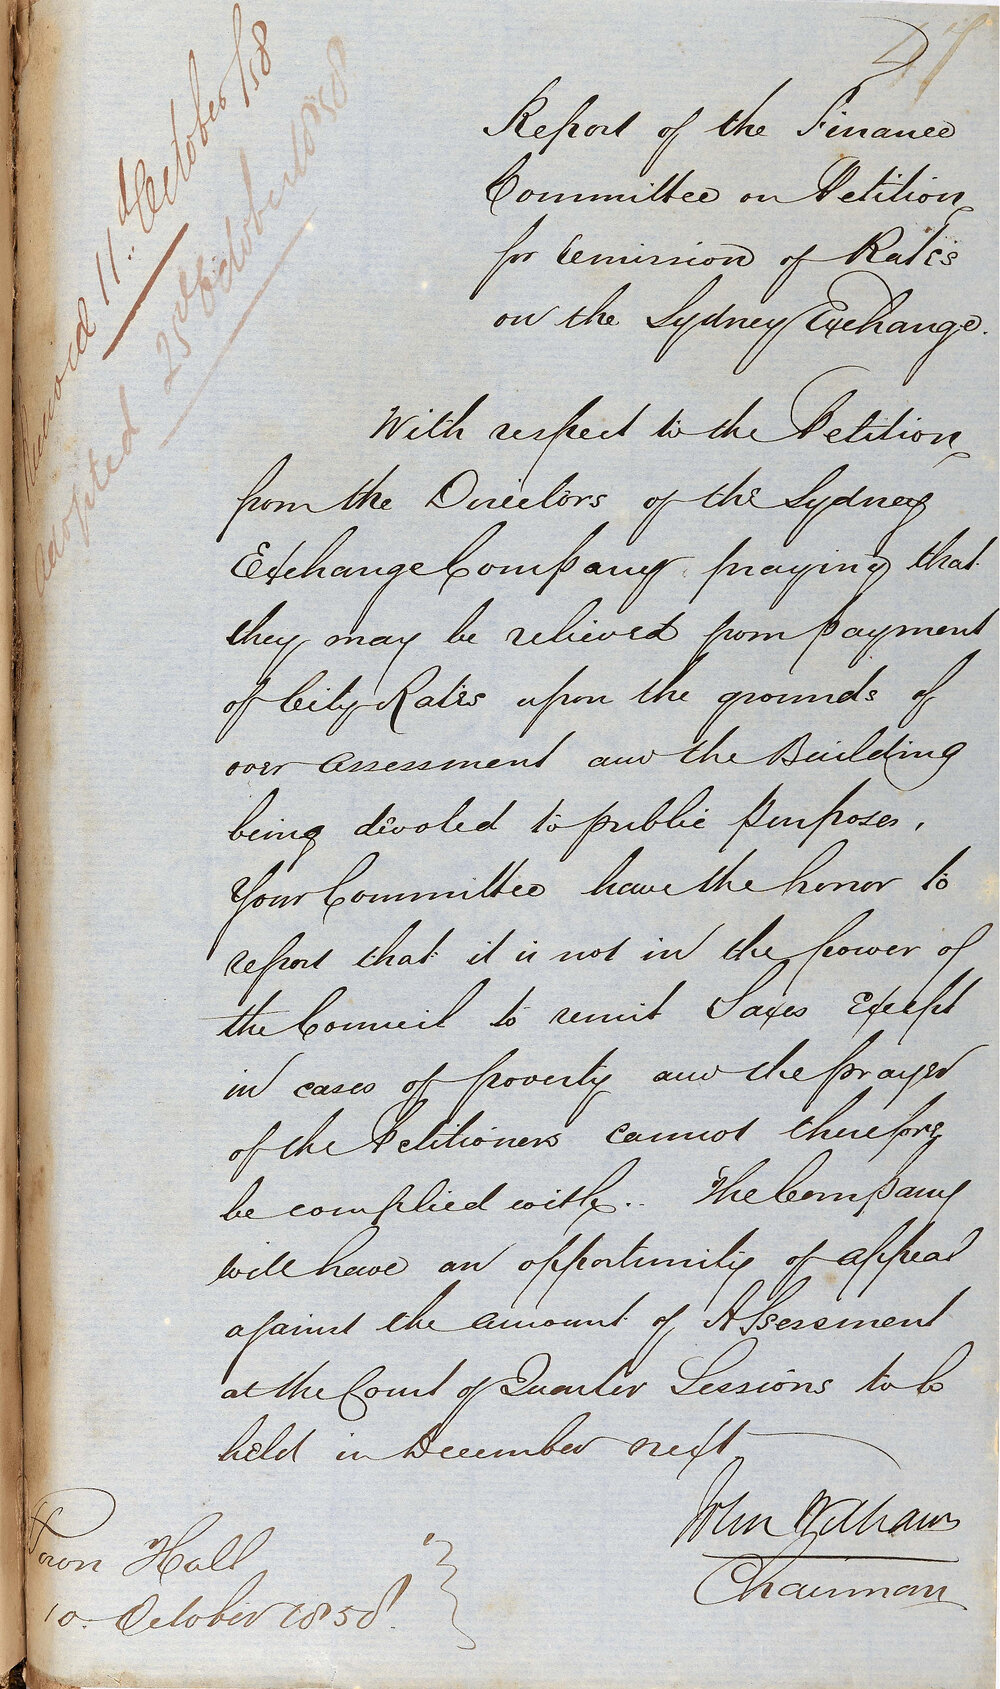 47
Received 11th October /58
Adopted 25th October 1858
Report of the Finance
Committee on Petition
for remission of Rates
on the Sydney Exchange.
With respect to the Petition
from the Directors of the Sydney
Exchange Company praying that
they may be relieved from payment
of City Rates upon the grounds of
over assessment and the Building
being devoted to public purposes,
Your Committee have the honor to
report that it is not in the power of
the Council to remit Taxes Except
in cases of poverty and the prayer
of the Petitioners cannot therefore
be complied with. The Company
will have an opportunity of appeal
against the amount of Assessment
at the Court of Quarter Sessions to be
held in December next
John Williams
Chairman
Town Hall
10. October 1858.